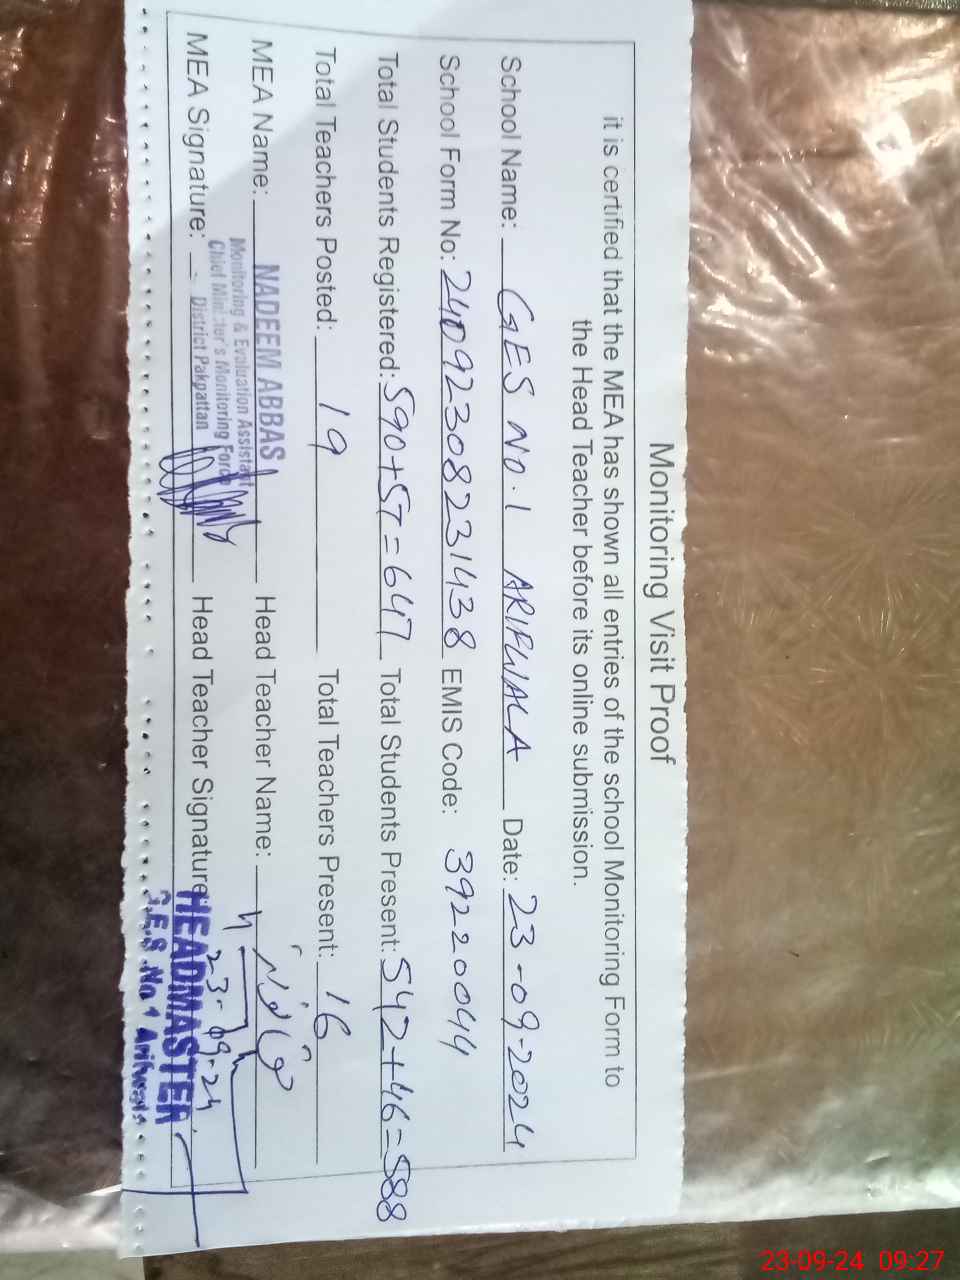 Monitoring Visit Proof
it is certified that the MEA has shown all entries of the school Monitoring Form to
the Head Teacher before its online submission.
School Name: GES NO.1 ARIFWALA Date: 23-09-2024
School Form No: 24092308231438 EMIS Code: 39220044
Total Students Registered: 590+57=647 Total Students Present: 542+46=588
Total Teachers Posted: 19 Total Teachers Present: 16
MEA Name: NADEEM ABBAS Head Teacher Name:
Monitoring & Evaluation Assistant
Chief Minister's Monitoring Force
District Pakpattan
MEA Signature: Head Teacher Signature
23-09-24
HEADMASTER
G.E.S No 1 Arifwala
23-09-24 09:27